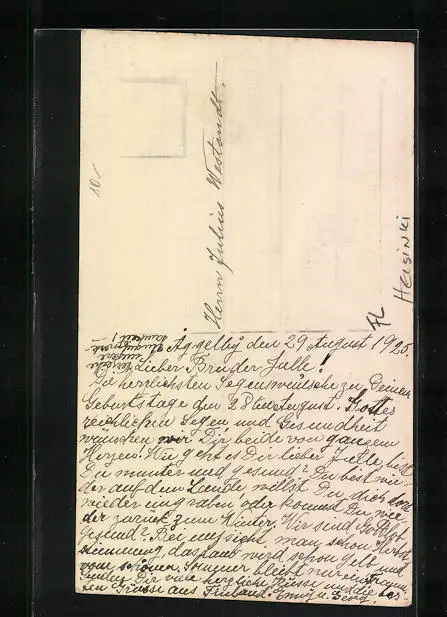 Herrn Julius Westandt.
HELSINKI
10.-
Aggelby den 29 August 1925.
Lieber Bruder Julle!
Die herzlichsten Segenswünsche zu Deinem
Geburtstage den 28 ten August. Gottes
reichlichen Segen und Gesundheit
wünschen wir Dir beide von ganzem
Herzen! Wie geht es Dir lieber Julle, bist
Du munter und gesund? Du bist wie-
der auf dem Lande, willst Du dich dort
wieder eingraben, oder kommst Du wie-
der zurück zum Winter. Wir sind Gottlob
Gesund! Bei uns sieht man schon Herbst
stimmung, das Laub wird schon gelb und
vom schönen Sommer bleibt nur ein Traum.
Senden Dir viele herzliche Küsse und die bes-
ten Grüsse aus Finland. Emmy u. Georg.